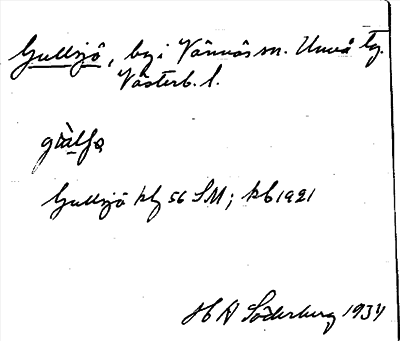 Gullsjö, by i Vännäs sn. Umeå tg.
Västerb. l.
Gullsjö kf 56 SM; kb 1921
H A Söderberg 1934